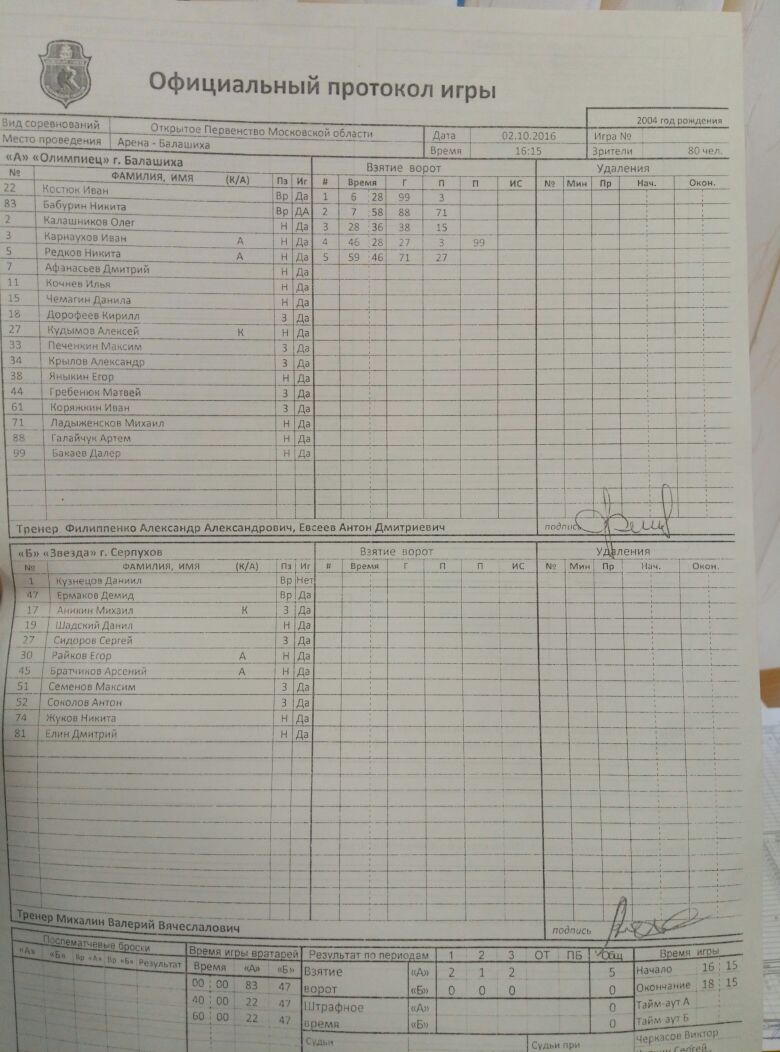 Официальный протокол игры
2004 год рождения
Вид соревнований Открытое Первенство Московской области Дата 02.10.2016 Игра №
Место проведения Арена - Балашиха Время 16:15 Зрители 80 чел.
«А» «Олимпиец» г. Балашиха Взятие ворот Удаления
№ ФАМИЛИЯ, ИМЯ (К/А) Пз Иг # Время Г П П ИС № Мин Пр Нач. Окон.
22 Костюк Иван Вр Да 1 6 28 99 3
83 Бабурин Никита Вр ДА 2 7 58 88 71
2 Калашников Олег Н Да 3 28 36 38 15
3 Карнаухов Иван А Н Да 4 46 28 27 3 99
5 Редков Никита А Н Да 5 59 46 71 27
7 Афанасьев Дмитрий Н Да
11 Кочнев Илья Н Да
15 Чемагин Данила Н Да
18 Дорофеев Кирилл З Да
27 Кудымов Алексей К Н Да
33 Печенкин Максим З Да
34 Крылов Александр З Да
38 Яныкин Егор Н Да
44 Гребенюк Матвей З Да
61 Коряжкин Иван З Да
71 Ладыженсков Михаил Н Да
88 Галайчук Артем Н Да
99 Бакаев Далер Н Да
Тренер Филиппенко Александр Александрович, Евсеев Антон Дмитриевич подпись
«Б» «Звезда» г. Серпухов Взятие ворот Удаления
№ ФАМИЛИЯ, ИМЯ (К/А) Пз Иг # Время Г П П ИС № Мин Пр Нач. Окон.
1 Кузнецов Даниил Вр Нет
47 Ермаков Демид Вр Да
17 Аникин Михаил К З Да
19 Шадский Данил Н Да
27 Сидоров Сергей З Да
30 Райков Егор А Н Да
45 Братчиков Арсений А Н Да
51 Семенов Максим З Да
52 Соколов Антон З Да
74 Жуков Никита Н Да
81 Елин Дмитрий Н Да
Тренер Михалин Валерий Вячеслалович подпись
Послематчевые броски Время игры вратарей Результат по периодам 1 2 3 ОТ ПБ Общ Время игры
«А» «Б» Вр «А» Вр «Б» Результат Время «А» «Б» Взятие «А» 2 1 2 5 Начало 16 15
00 00 83 47 ворот «Б» 0 0 0 0 Окончание 18 15
40 00 22 47 Штрафное «А» 0 Тайм-аут А
60 00 22 47 время «Б» 0 Тайм-аут Б
Судьи Судьи при Черкасов Виктор
Сергей,